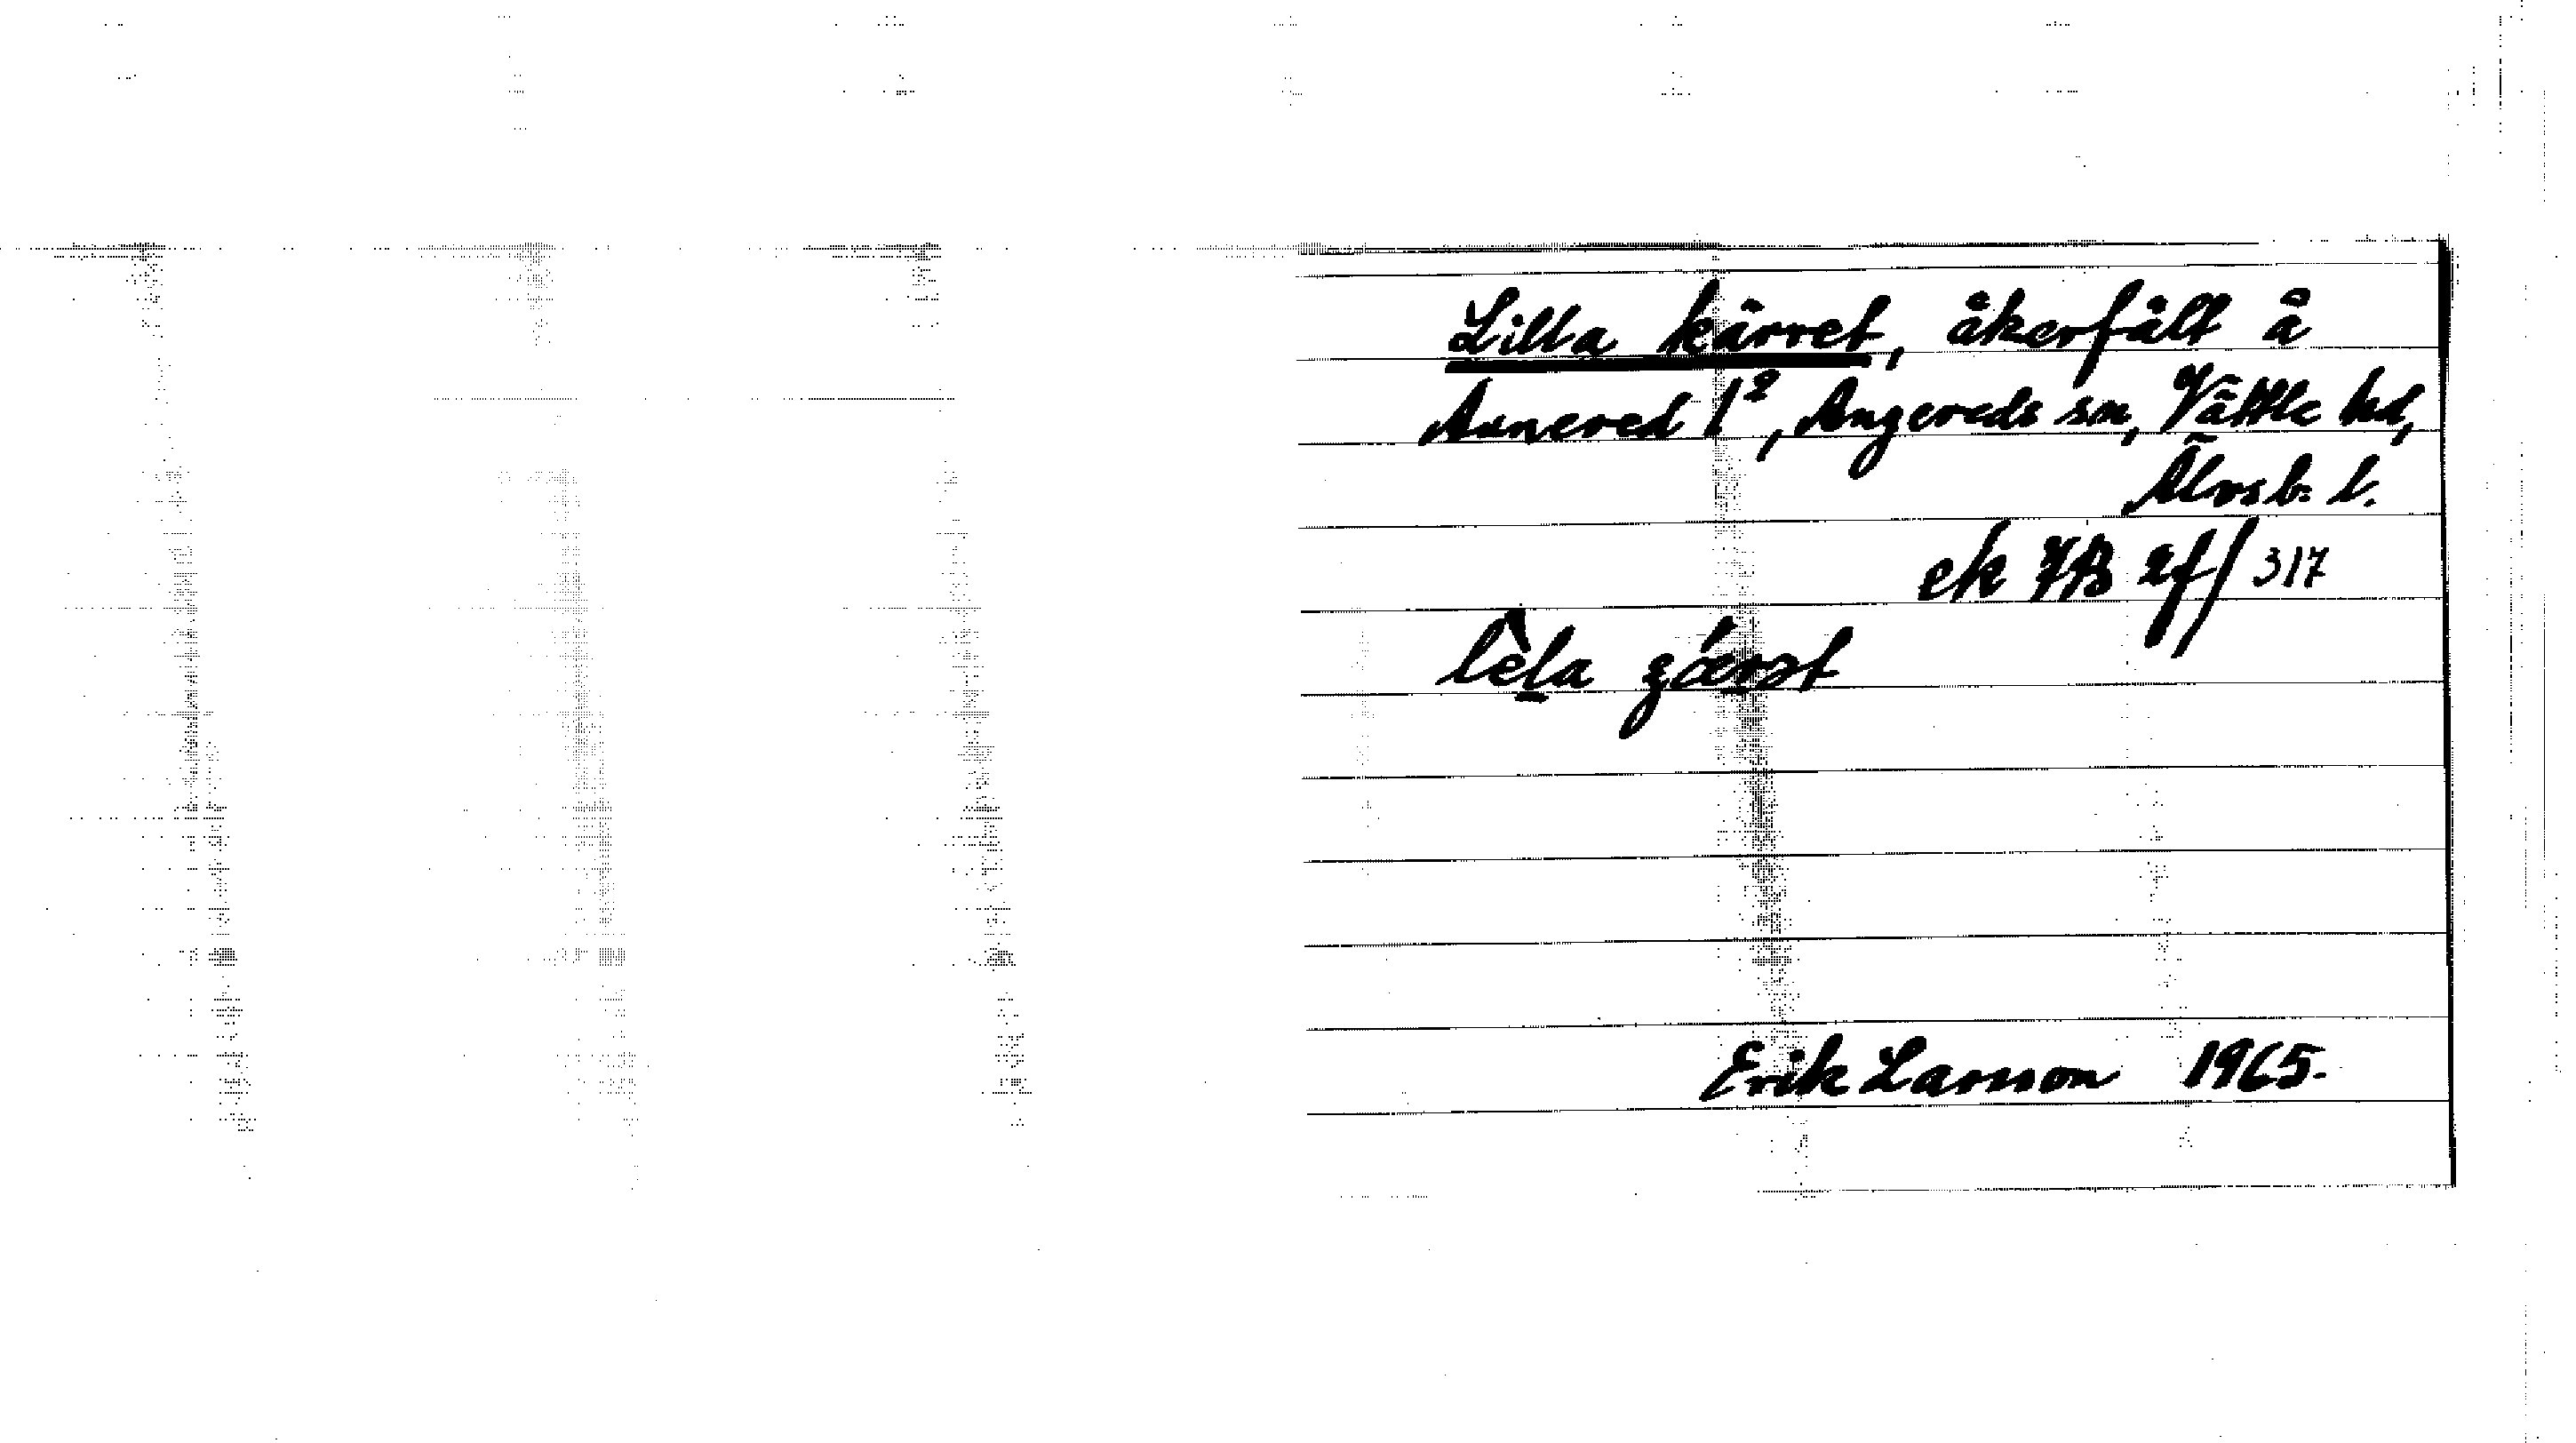 Lilla kärret, åkerfält å
Annered 1², Angereds sn, Vättle hd,
Älvsb. l.
ek 7B 2f/317
lèla
Erik Larsson 1965.